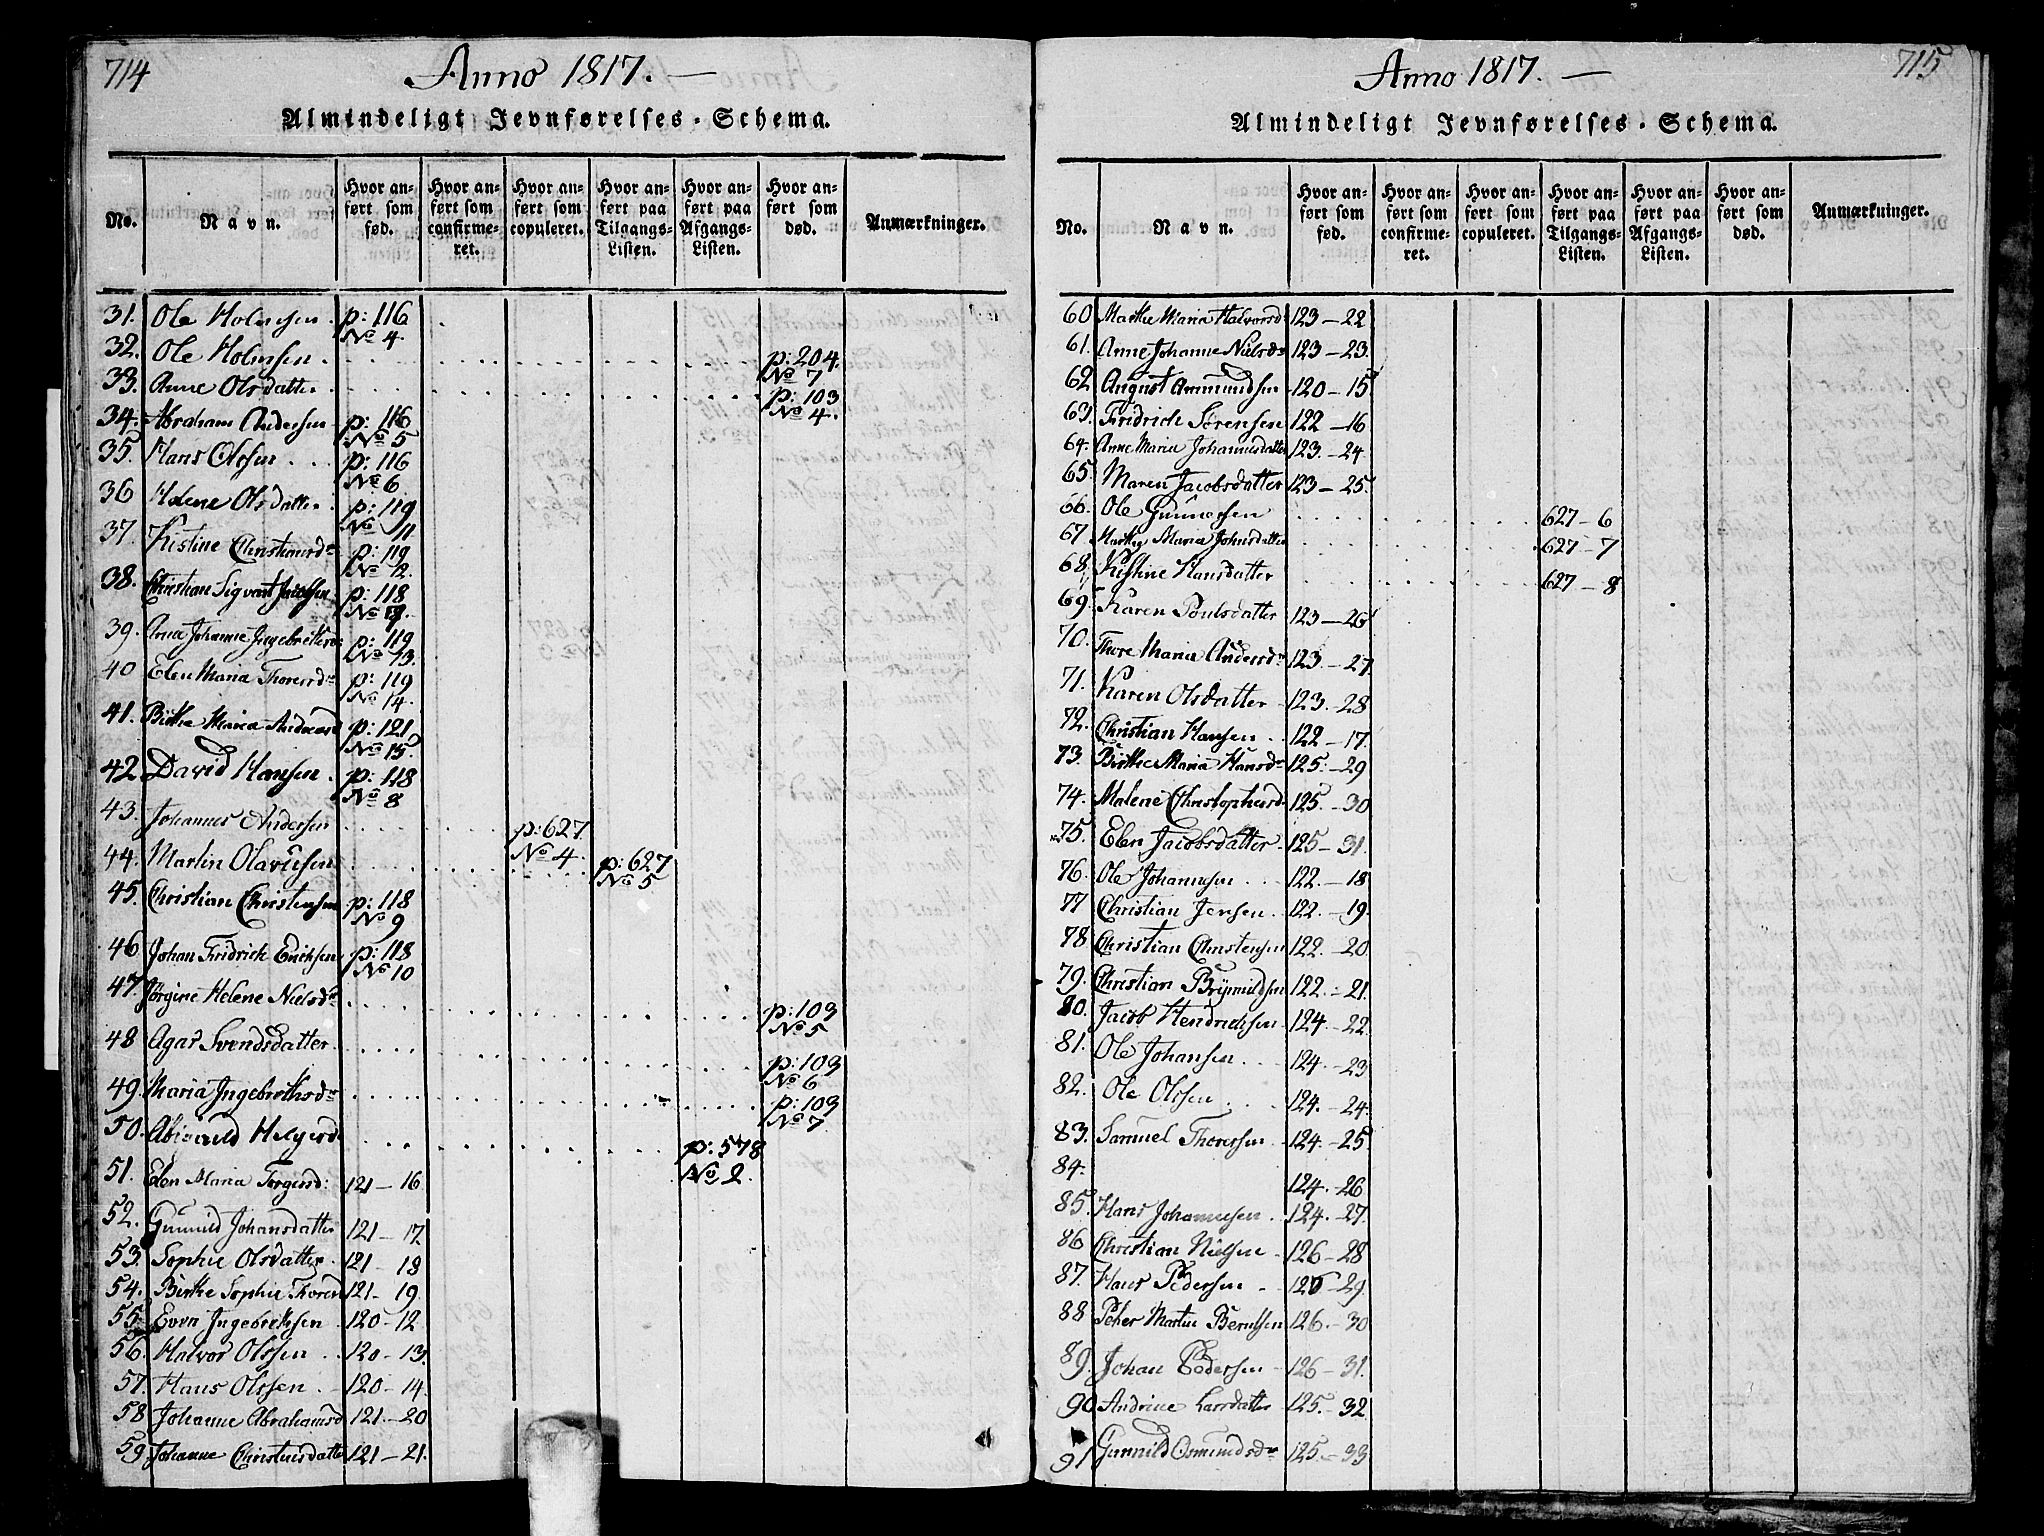 714
Anno 1817. —
Almindeligt Jevnførelses-Schema.
No.
Navn.
Hvor an-
ført som
fød.
Hvor an-
ført som
confirme-
ret.
Hvor an-
ført som
copuleret.
Hvor an-
ført paa
Tilgangs-
Listen.
Hvor an-
ført paa
Afgangs-
Listen.
Hvor an-
ført som
død.
Anmærkninger.
31. Ole Holmsen p: 116 No 4.
32. Ole Holmsen. p: 204. No 7
33. Anne Olsdatter p: 103 No 4.
34. Abraham Andersen p: 116 No 5
35. Hans Olssen p: 116 No 6
36 Helene Olsdatter p: 119 No 11
37. Kistine Christiansd p: 119 No 12.
38. Christian Sigvart Jacobsen p: 118 No
39. Anna Johanne Ingebrettsd p: 119 No 13.
40 Elen Maria Thoresd p: 119 No 14.
41. Birthe Maria Andreasd p: 121 No 15.
42. David Hansen. p: 118 No 8
43. Johannes Andersen p: 627. No 4.
44. Martin Olavesen p: 627 No 5
45. Christian Christensen p: 118 No 9
46 Johan Fridrich Erichsen p: 118 No 10
47. Jørgine Helene Nielsd p: 103 No 5
48 Agar Svendsdatter p: 103 No 6
49. Maria Ingebrethsd p: 103 No 7
50. Helgesd p: 578 No 2.
51. Elen Maria Torgersd: 121 — 16
52. Gunnild Johansdatter 121 — 17.
53. Sophie Olsdatter 121 — 18
54. Birthe Sophie Thoresd 121 — 19.
55. Even Ingebrethsen 120 — 12
56. Halvor Olssen 120 — 13.
57. Hans Olssen. 120 — 14.
58 Johanne Abrahamsd 121 — 20
59 Johanne Christensdatter 121 — 21.
Anno 1817. —
715
Almindeligt Jevnførelses-Schema.
No.
Navn.
Hvor an-
ført som
fød.
Hvor an-
ført som
confirme-
ret.
Hvor an-
ført som
copuleret.
Hvor an-
ført paa
Tilgangs-
Listen.
Hvor an-
ført paa
Afgangs-
Listen.
Hvor an-
ført som
død.
Anmærkninger.
60 Marthe Maria Halvorsd 123 — 22
61. Anne Johanne Nielsd 123 — 23.
62 August Ammundsen 120 — 15
63. Fridrich Sørensen 122 — 16
64. Anne Maria Johannesdatter 123. — 24
65. Maren Jacobsdatter 123 — 25.
66. Ole Gunnersen 627 — 6
67. Marthe Maria Johnsdatter 627 — 7
68. Kistine Hansdatter 627 — 8
69. Karen Poulsdatter 123 — 26
70. Thore Maria Andersd 123. — 27.
71. Karen Olsdatter 123. — 28
72. Christian Hansen 122 — 17.
73. Birthe Maria Hansd 125. — 29
74. Malene Christophersd 125. — 30
75. Elen Jacobsdatter 125 — 31.
76. Ole Johannesen 122. — 18
77 Christian Jensen 122. — 19.
78 Christian Christensen 122. — 20
79. Christian Brynnildsen 122. — 21.
80. Jacob Hendrichsen 124. — 22
81. Ole Johansen 124. — 23
82. Ole Olssen 124. — 24.
83. Samuel Thoressen 124. — 25
84. 124. — 26
85. Hans Johannesen 124. — 27.
86 Christian Nielsen 126 — 28
87. Hans Pedersen 126 — 29
88 Peher Martin Berntsen 126. — 30
89. Johan Pedersen 126 — 31.
90 Andrine Larsdatter 125. — 32
91 Gunnild Osmundsd 125. — 33